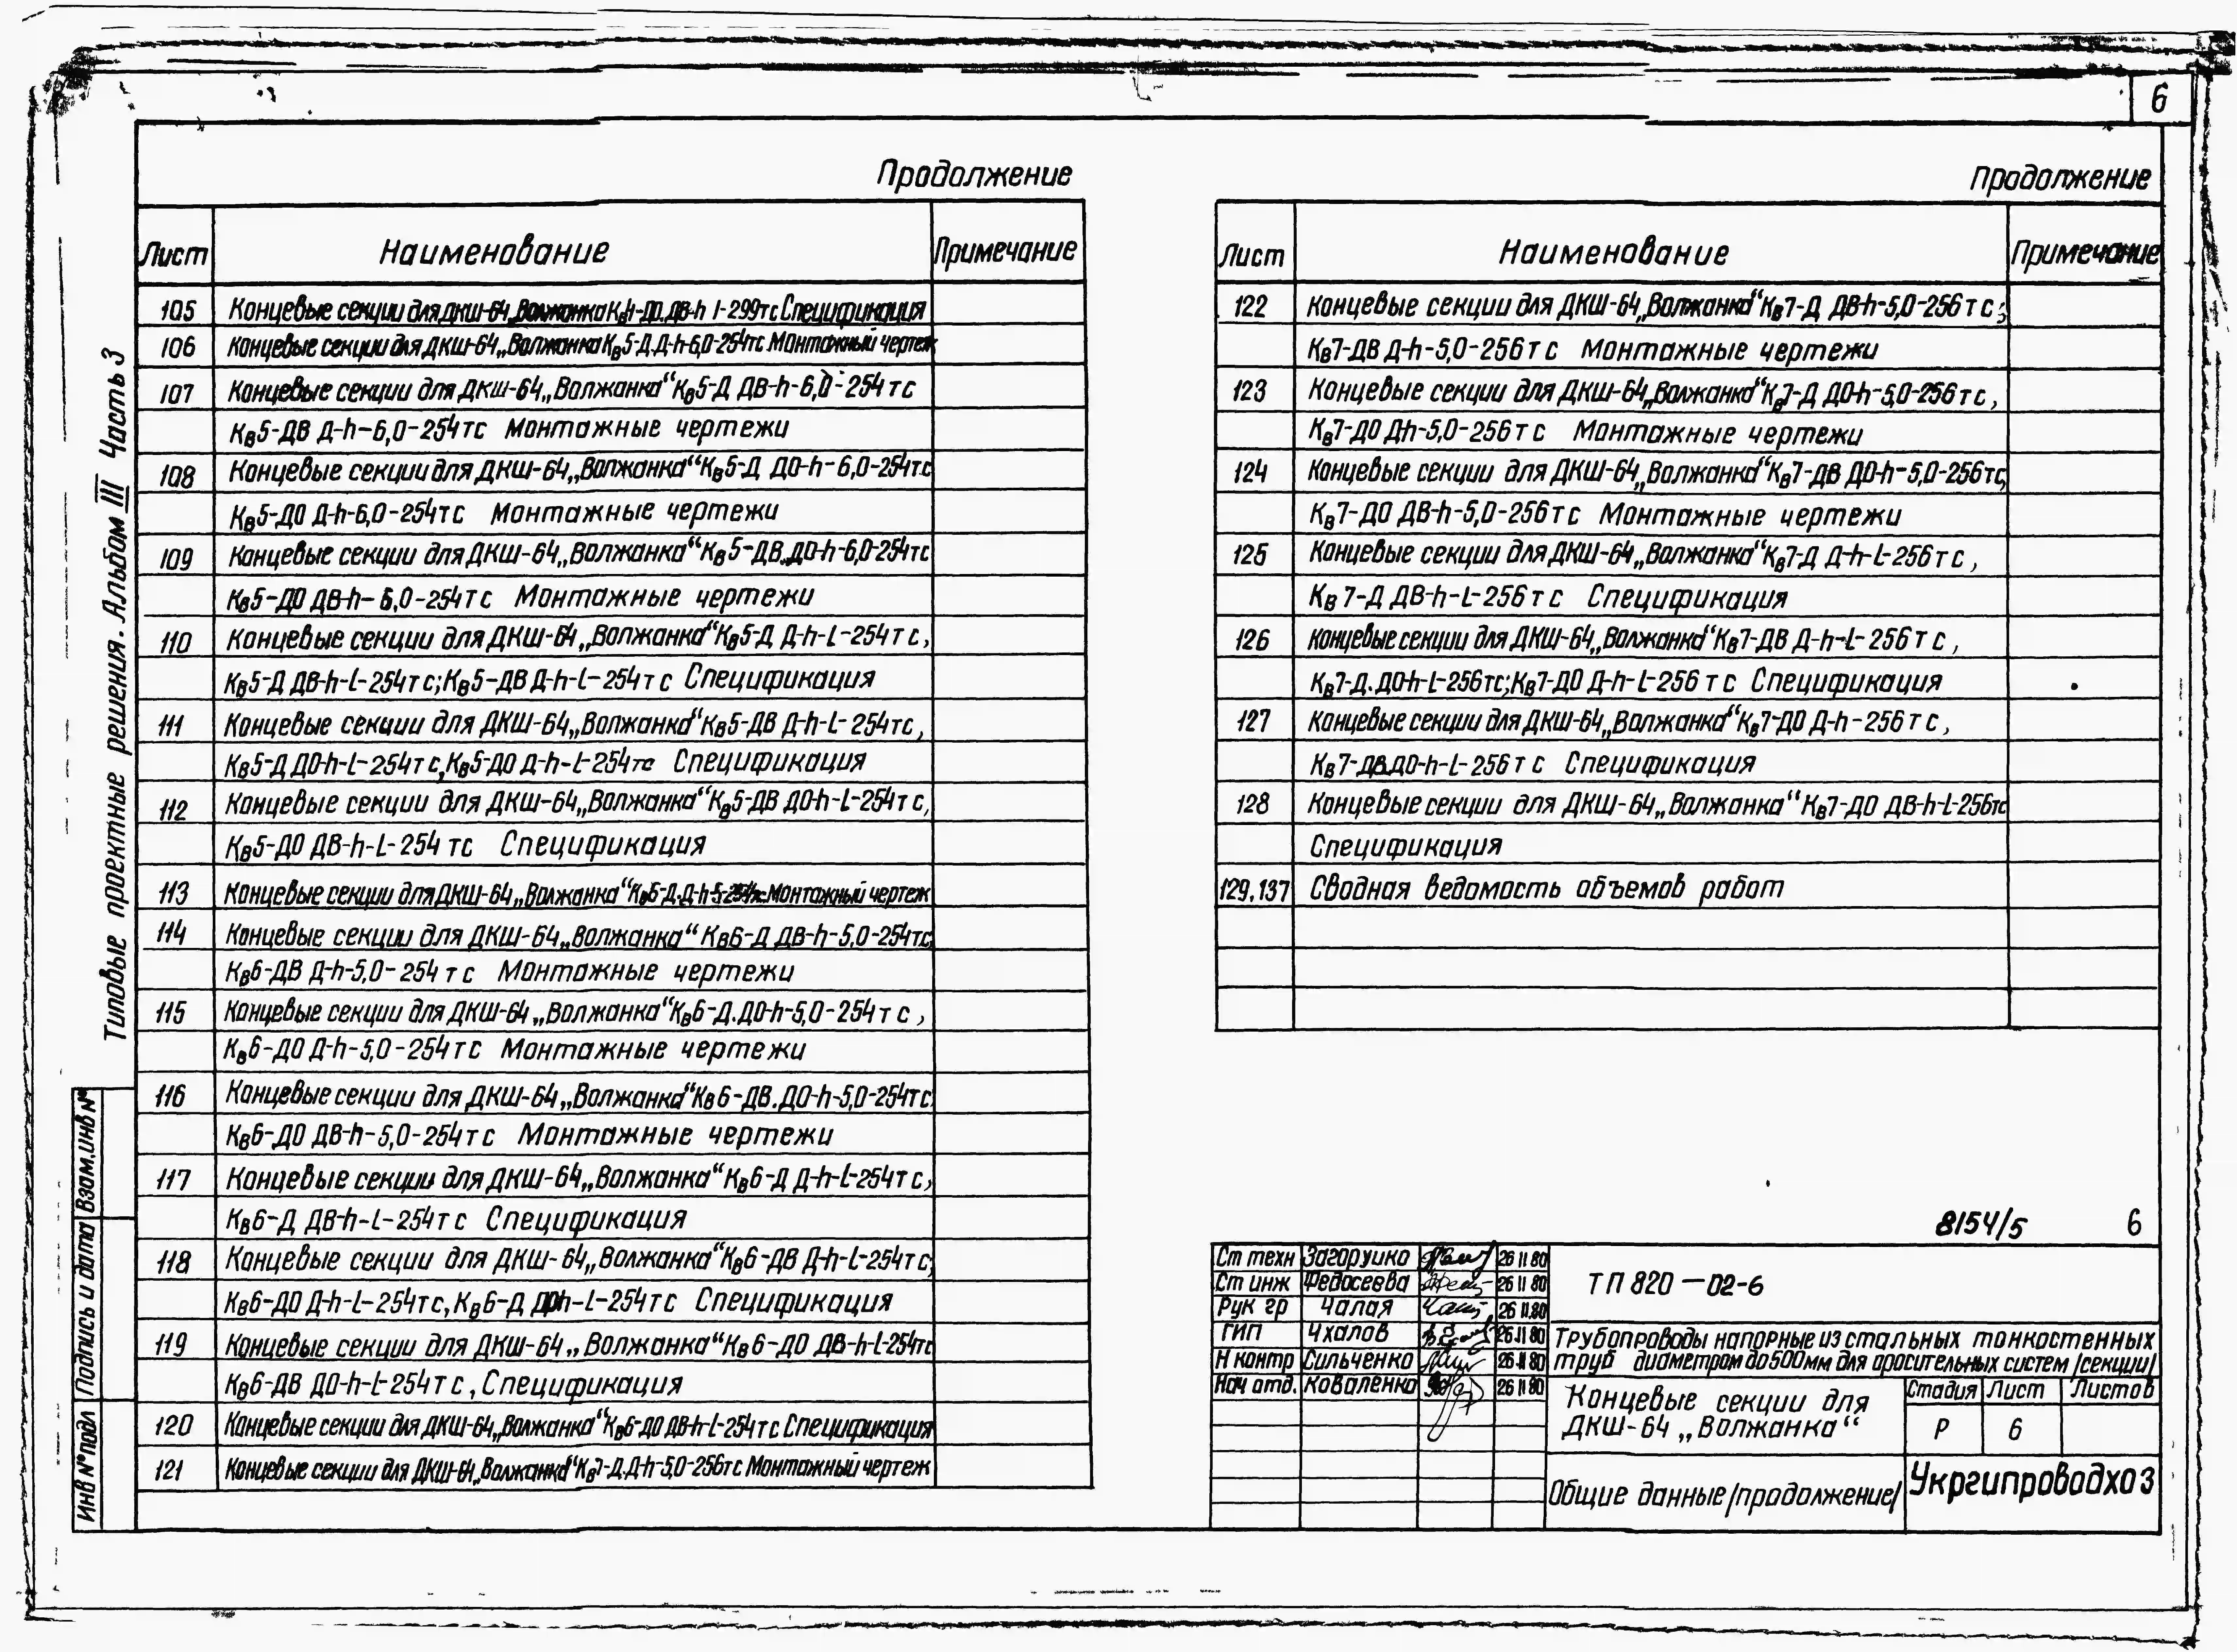 6
Типовые проектные решения. Альбом III Часть 3
Продолжение
Лист Наименование Примечание
105 Концевые секции для ДКШ-64„Волжанка Кв4-ДО.ДВ-h l-299тс Спецификация
106 Концевые секции для ДКШ-64„Волжанка Кв5-Д.Д-h-6,0-254тс Монтажный чертеж
107 Концевые секции для ДКШ-64„Волжанка“Кв5-Д ДВ-h-6,0-254 тс
Кв5-ДВ Д-h-6,0-254тс Монтажные чертежи
108 Концевые секции для ДКШ-64„Волжанка“Кв5-Д ДО-h-6,0-254тс
Кв5-ДО Д-h-6,0-254тс Монтажные чертежи
109 Концевые секции для ДКШ-64„Волжанка“Кв5-ДВ.ДО-h-6,0-254тс
Кв5-ДО ДВ-h-6,0-254тс Монтажные чертежи
110 Концевые секции для ДКШ-64„Волжанка“Кв5-Д Д-h-l-254тс,
Кв5-Д ДВ-h-l-254тс;Кв5-ДВ Д-h-l-254тс Спецификация
111 Концевые секции для ДКШ-64„Волжанка“Кв5-ДВ Д-h-l-254тс,
Кв5-Д ДО-h-l-254тс,Кв5-ДО Д-h-l-254тс Спецификация
112 Концевые секции для ДКШ-64„Волжанка“Кв5-ДВ ДО-h-l-254тс,
Кв5-ДО ДВ-h-l-254 тс Спецификация
113 Концевые секции для ДКШ-64„Волжанка“Кв6-Д.Д-h-5-254тс.Монтажный чертеж
114 Концевые секции для ДКШ-64„Волжанка“ Кв6-Д ДВ-h-5,0-254тс,
Кв6-ДВ Д-h-5,0-254 тс Монтажные чертежи
115 Концевые секции для ДКШ-64„Волжанка“Кв6-Д.ДО-h-5,0-254тс,
Кв6-ДО Д-h-5,0-254тс Монтажные чертежи
116 Концевые секции для ДКШ-64„Волжанка“Кв6-ДВ.ДО-h-5,0-254тс
Кв6-ДО ДВ-h-5,0-254тс Монтажные чертежи
117 Концевые секции для ДКШ-64„Волжанка“Кв6-Д Д-h-l-254тс,
Кв6-Д ДВ-h-l-254тс Спецификация
118 Концевые секции для ДКШ-64„Волжанка“Кв6-ДВ Д-h-l-254тс,
Кв6-ДО Д-h-l-254тс,Кв6-Д ДО-h-l-254тс Спецификация
119 Концевые секции для ДКШ-64„Волжанка“Кв6-ДО ДВ-h-l-254тс
Кв6-ДВ ДО-h-l-254тс, Спецификация
120 Концевые секции для ДКШ-64„Волжанка“Кв6-ДО ДВ-h-l-254тс Спецификация
121 Концевые секции для ДКШ-64„Волжанка“Кв7-Д.Д-h-5,0-256тс Монтажный чертеж
Продолжение
Лист Наименование Примечание
122 Концевые секции для ДКШ-64„Волжанка“Кв7-Д ДВ-h-5,0-256тс;
Кв7-ДВ Д-h-5,0-256тс Монтажные чертежи
123 Концевые секции для ДКШ-64„Волжанка“Кв7-Д ДО-h-5,0-256тс,
Кв7-ДО Дh-5,0-256тс Монтажные чертежи
124 Концевые секции для ДКШ-64„Волжанка“Кв7-ДВ ДО-h-5,0-256тс,
Кв7-ДО ДВ-h-5,0-256тс Монтажные чертежи
125 Концевые секции для ДКШ-64„Волжанка“Кв7-Д Д-h-l-256тс,
Кв7-Д ДВ-h-l-256тс Спецификация
126 Концевые секции для ДКШ-64„Волжанка“Кв7-ДВ Д-h-l-256тс,
Кв7-Д.ДО-h-l-256тс;Кв7-ДО Д-h-l-256тс Спецификация
127 Концевые секции для ДКШ-64„Волжанка“Кв7-ДО Д-h-256тс,
Кв7-ДВ.ДО-h-l-256тс Спецификация
128 Концевые секции для ДКШ-64„Волжанка“Кв7-ДО ДВ-h-l-256тс
Спецификация
129,137 Сводная ведомость объемов работ
8154/5 6
Ст техн Загоруйко 26 11 80
Ст инж Федосеева 26 11 80
Рук гр Чалая 26 11.80
ГИП Чхалов 26.11 80
Н контр Сильченко 26 11 80
Нач отд. Коваленко 26 11 80
ТП 820-02-6
Трубопроводы напорные из стальных тонкостенных
труб диаметром до 500мм для оросительных систем /секции/
Концевые секции для
ДКШ-64 „Волжанка“
Стадия Лист Листов
Р 6
Общие данные/продолжение/
Укргипроводхоз
Взам.инв№
Подпись и дата
Инв №подл